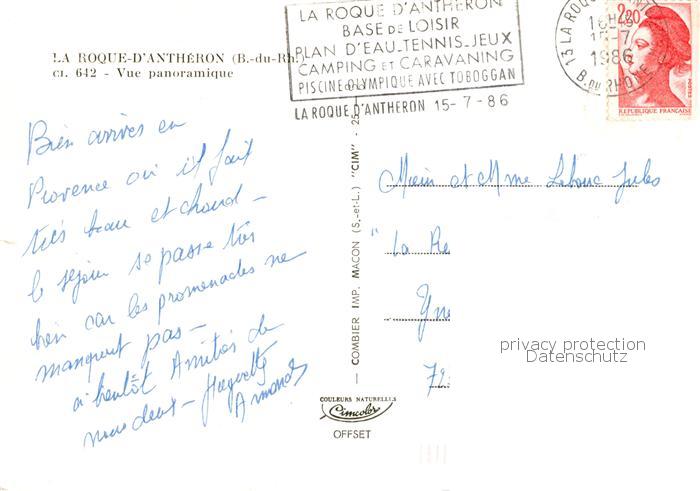 LA ROQUE-D'ANTHÉRON (B.-du-Rh.)
CI. 642 - Vue panoramique
LA ROQUE D'ANTHERON
BASE DE LOISIR
PLAN D'EAU-TENNIS-JEUX
CAMPING ET CARAVANING
PISCINE OLYMPIQUE AVEC TOBOGGAN
LA ROQUE D'ANTHERON 15-7-86
13 LA ROQUE
15-7
1986
B. DU RHONE
2,20
REPUBLIQUE FRANÇAISE
POSTES
Bien arrivés en
Provence où il fait
très beau et chaud -
le séjour se passe très
bien car les promenades ne
manquent pas -
à bientôt Amitiés de
nous deux - Huguette
Armand
COMBIER IMP. MACON (S.-et-L.) "CIM"
COULEURS NATURELLES
Cimcolor
OFFSET
et Mme Jules
"La
72
privacy protection
Datenschutz